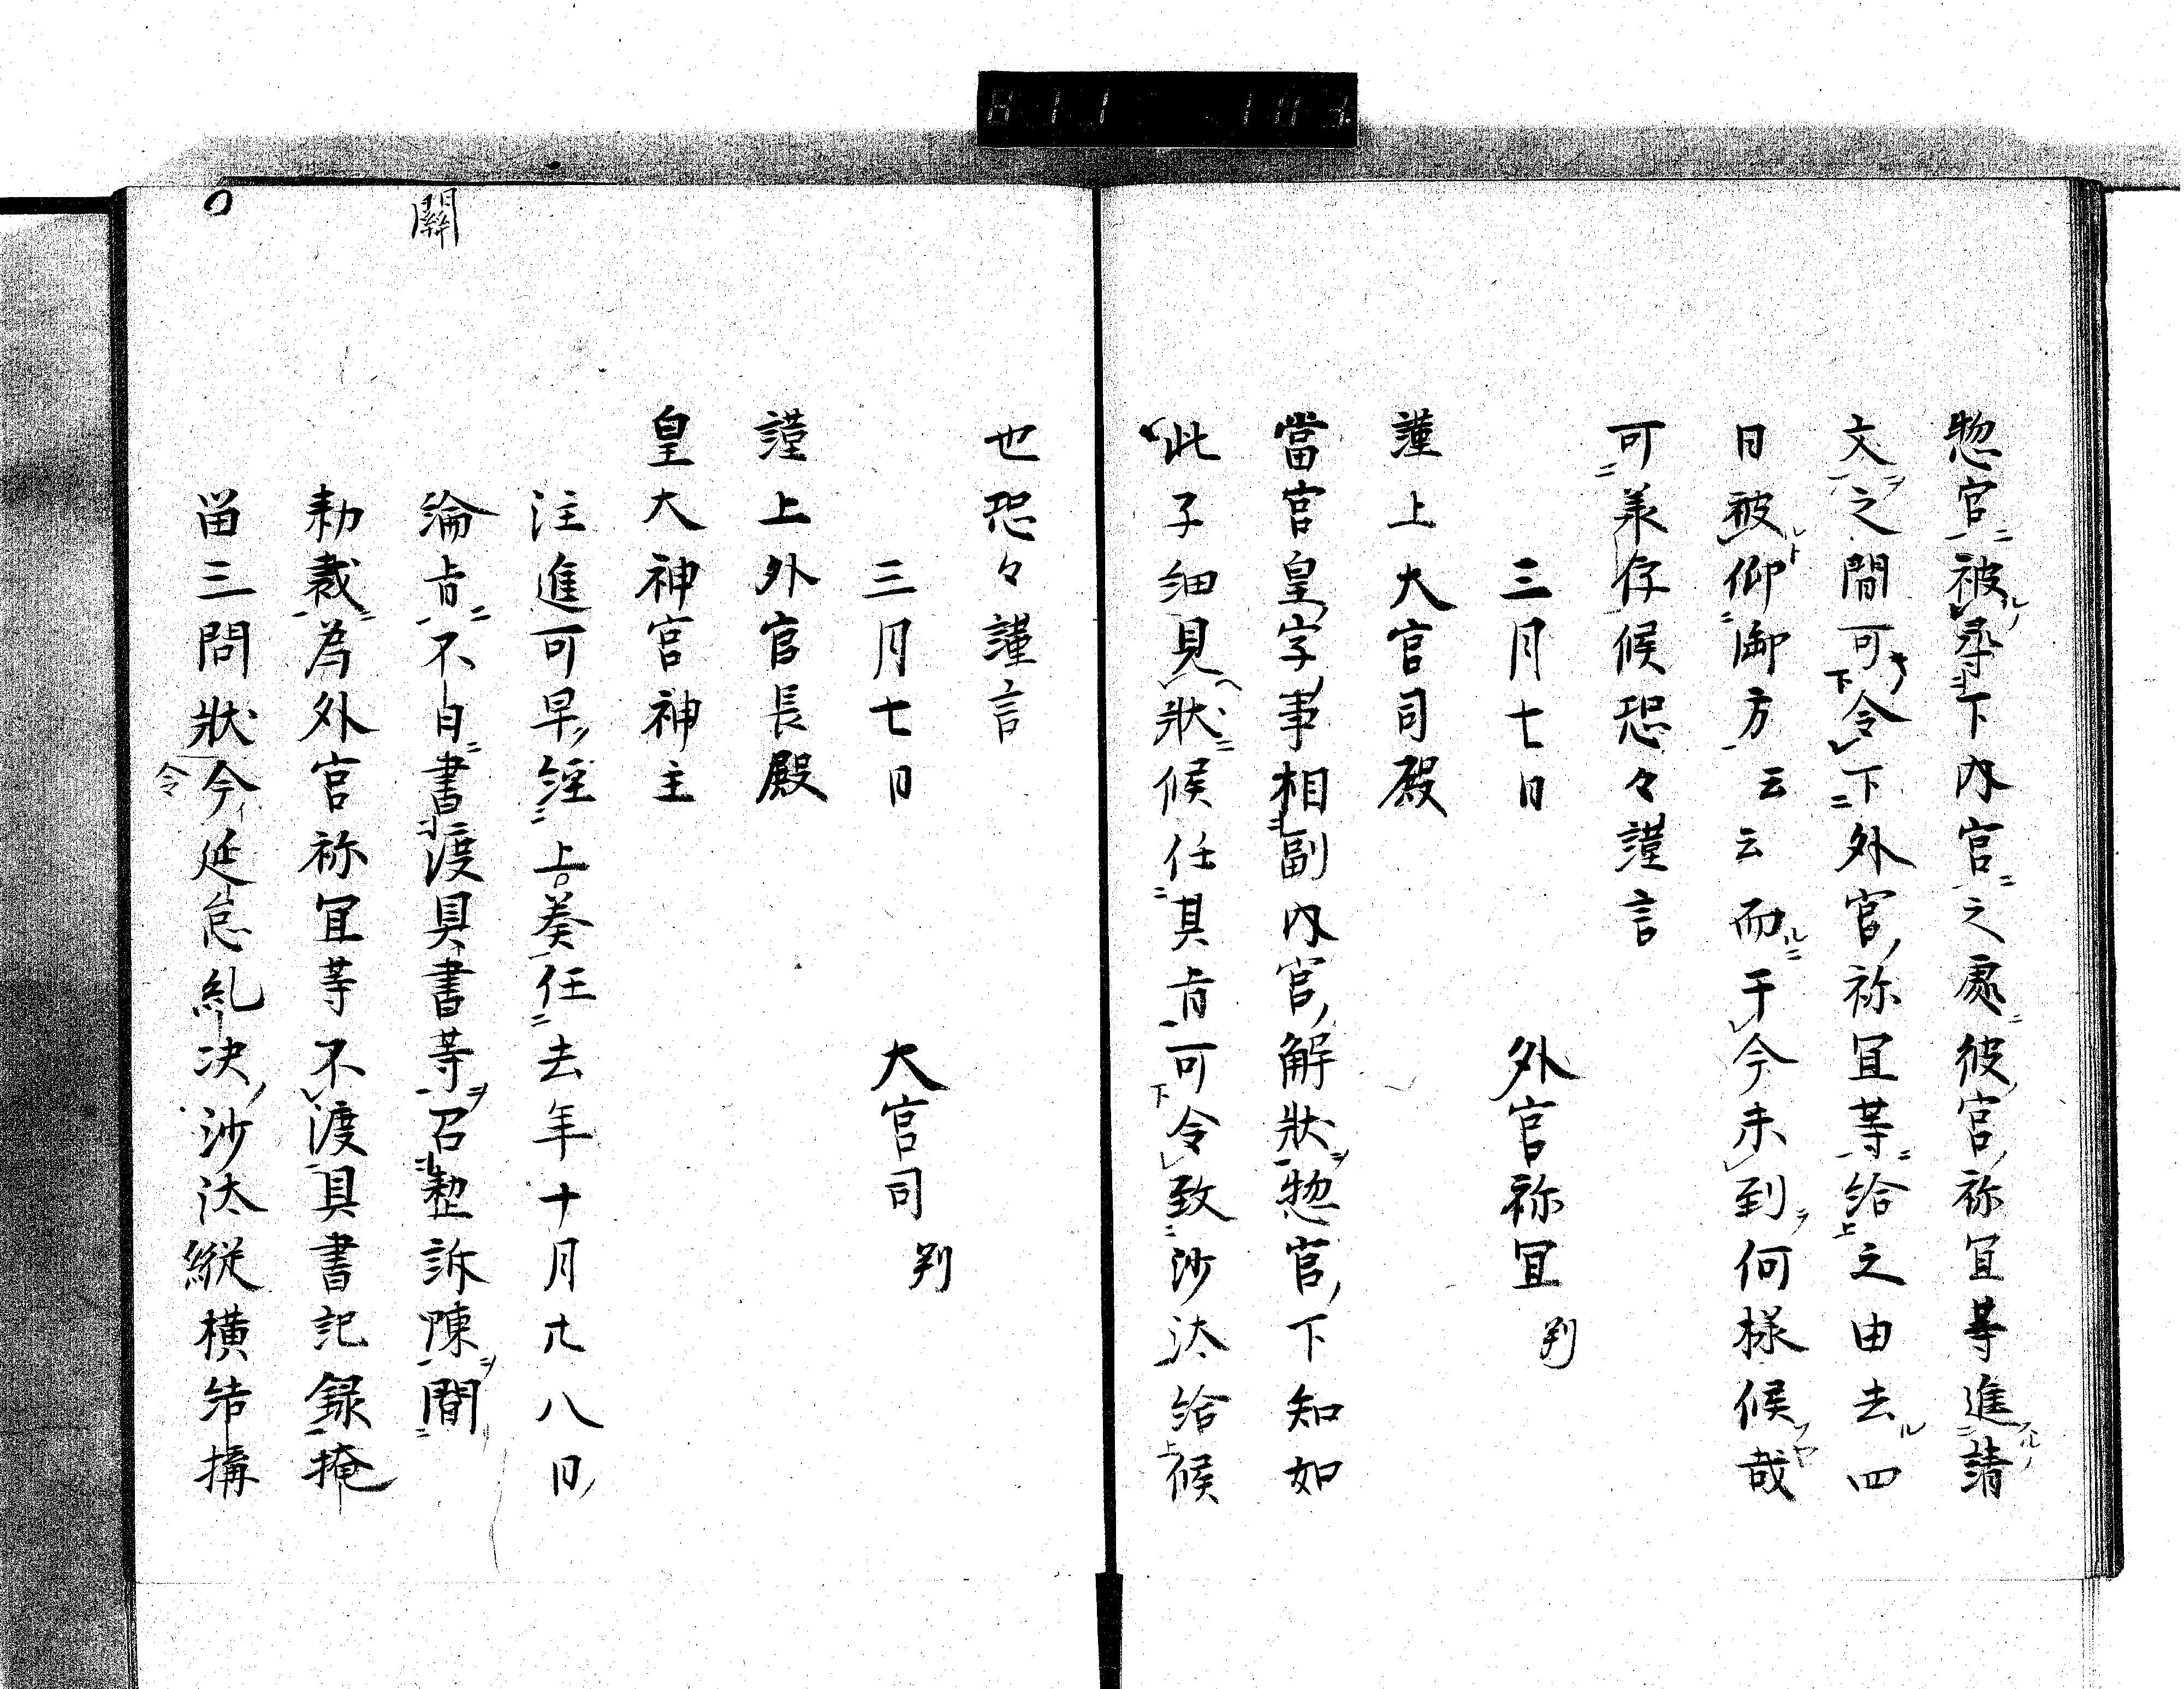 惣官被尋下内宮之處彼宮祢冝等進請
文之間可令下外宮祢冝等給之由去四
日被仰御方云云而于今未到何様候哉
可羕存候恐々謹言
三月七日　外宮祢冝判
謹上大宮司殿
當宮皇字事相副内宮解狀惣官下知如
此子細見狀候任其旨可令致沙汰給候
也恐々謹言
三月七日　大宮司判
謹上外宮長殿
皇大神宮神主
注進可早經上奏任去年十月廿八日
綸旨不日書渡具書等召整訴陳間
關
勅裁為外宮祢冝等不渡具書記錄掩
留三問狀今延怠糺决沙汰縦横結搆
令